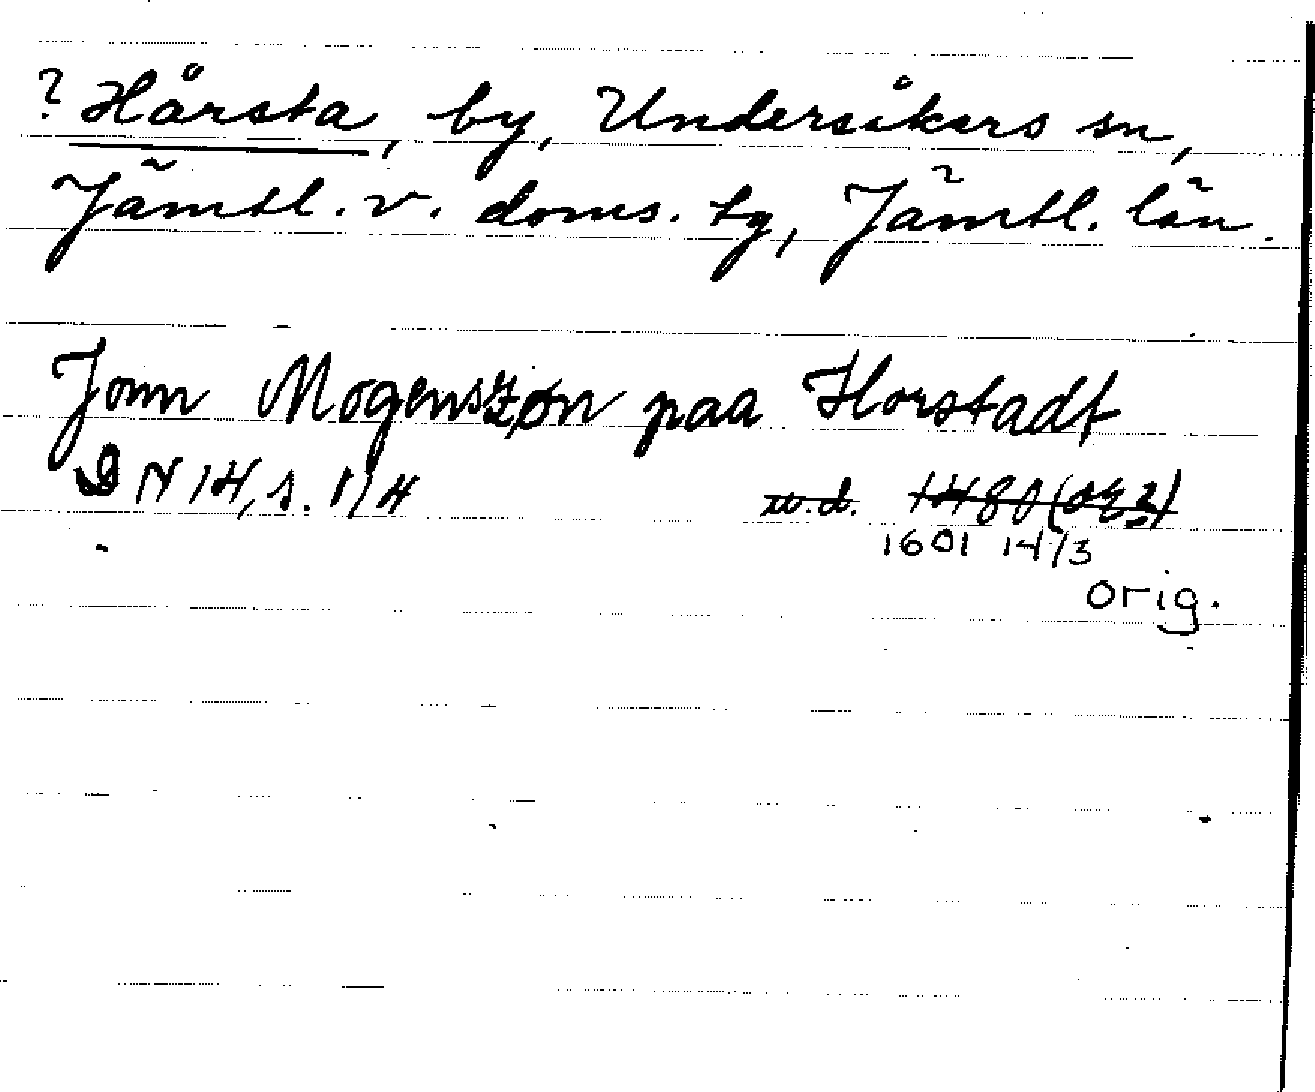 ? Hårsta, by, Undersåkers sn,
Jämtl. v. doms. tg, Jämtl. län.
Jonn Mogenszøn paa Horstadt
DN 14, s. 114
w.d. 1480 (
1601 14/3
orig.